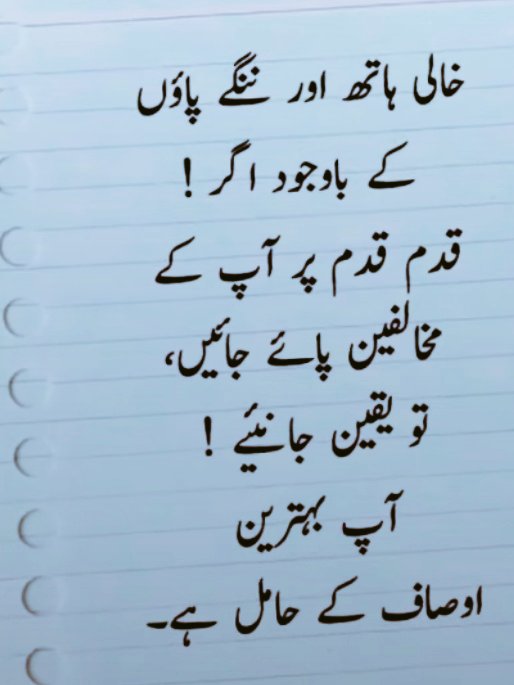 خالی ہاتھ اور ننگے پاؤں
کے باوجود اگر !
قدم قدم پر آپ کے
مخالفین پائے جائیں،
تو یقین جانئیے !
آپ بہترین
اوصاف کے حامل ہے۔